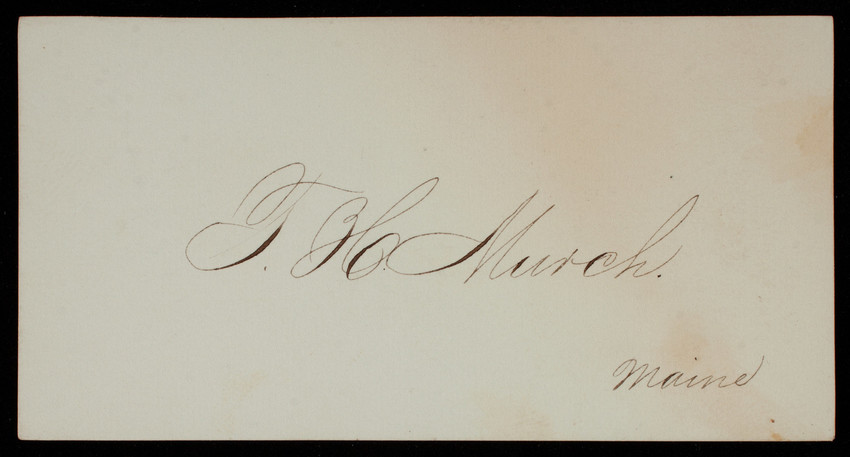 T. H. Murch.
Maine